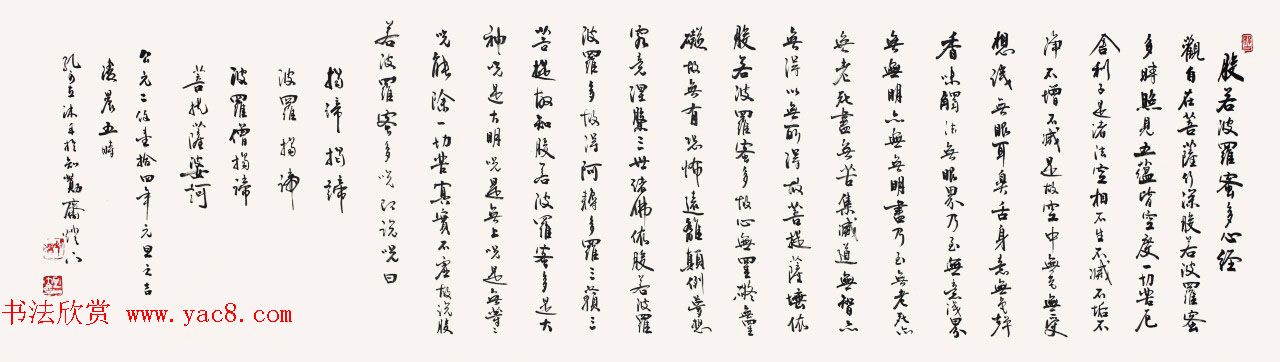 般若波羅蜜多心经
觀自在菩薩行深般若波羅蜜
多時照見五蘊皆空度一切苦厄
舍利子是诸法空相不生不滅不垢不
净不增不減是故空中無色無受
想識無眼耳鼻舌身意無色聲
香味觸法無眼界乃至無意識界
無無明亦無無明盡乃至無老死亦
無老死盡無苦集滅道無智亦
無得以無所得故菩提薩埵依
般若波羅蜜多故心無罣礙無罣
礙故無有恐怖遠離顛倒夢想
究竟涅槃三世诸佛依般若波羅
波羅多故得阿耨多羅三藐三
菩提故知般若波羅蜜多是大
神咒是大明咒是無上咒是無等々
咒能除一切苦真實不虛故说般
若波羅蜜多咒即说咒曰
揭諦揭諦
波羅揭諦
波羅僧揭諦
菩提薩婆訶
公元二仟壹拾四年元旦之吉
清晨五時
孔沐手於知齋燈下
书法欣赏 www.yac8.com